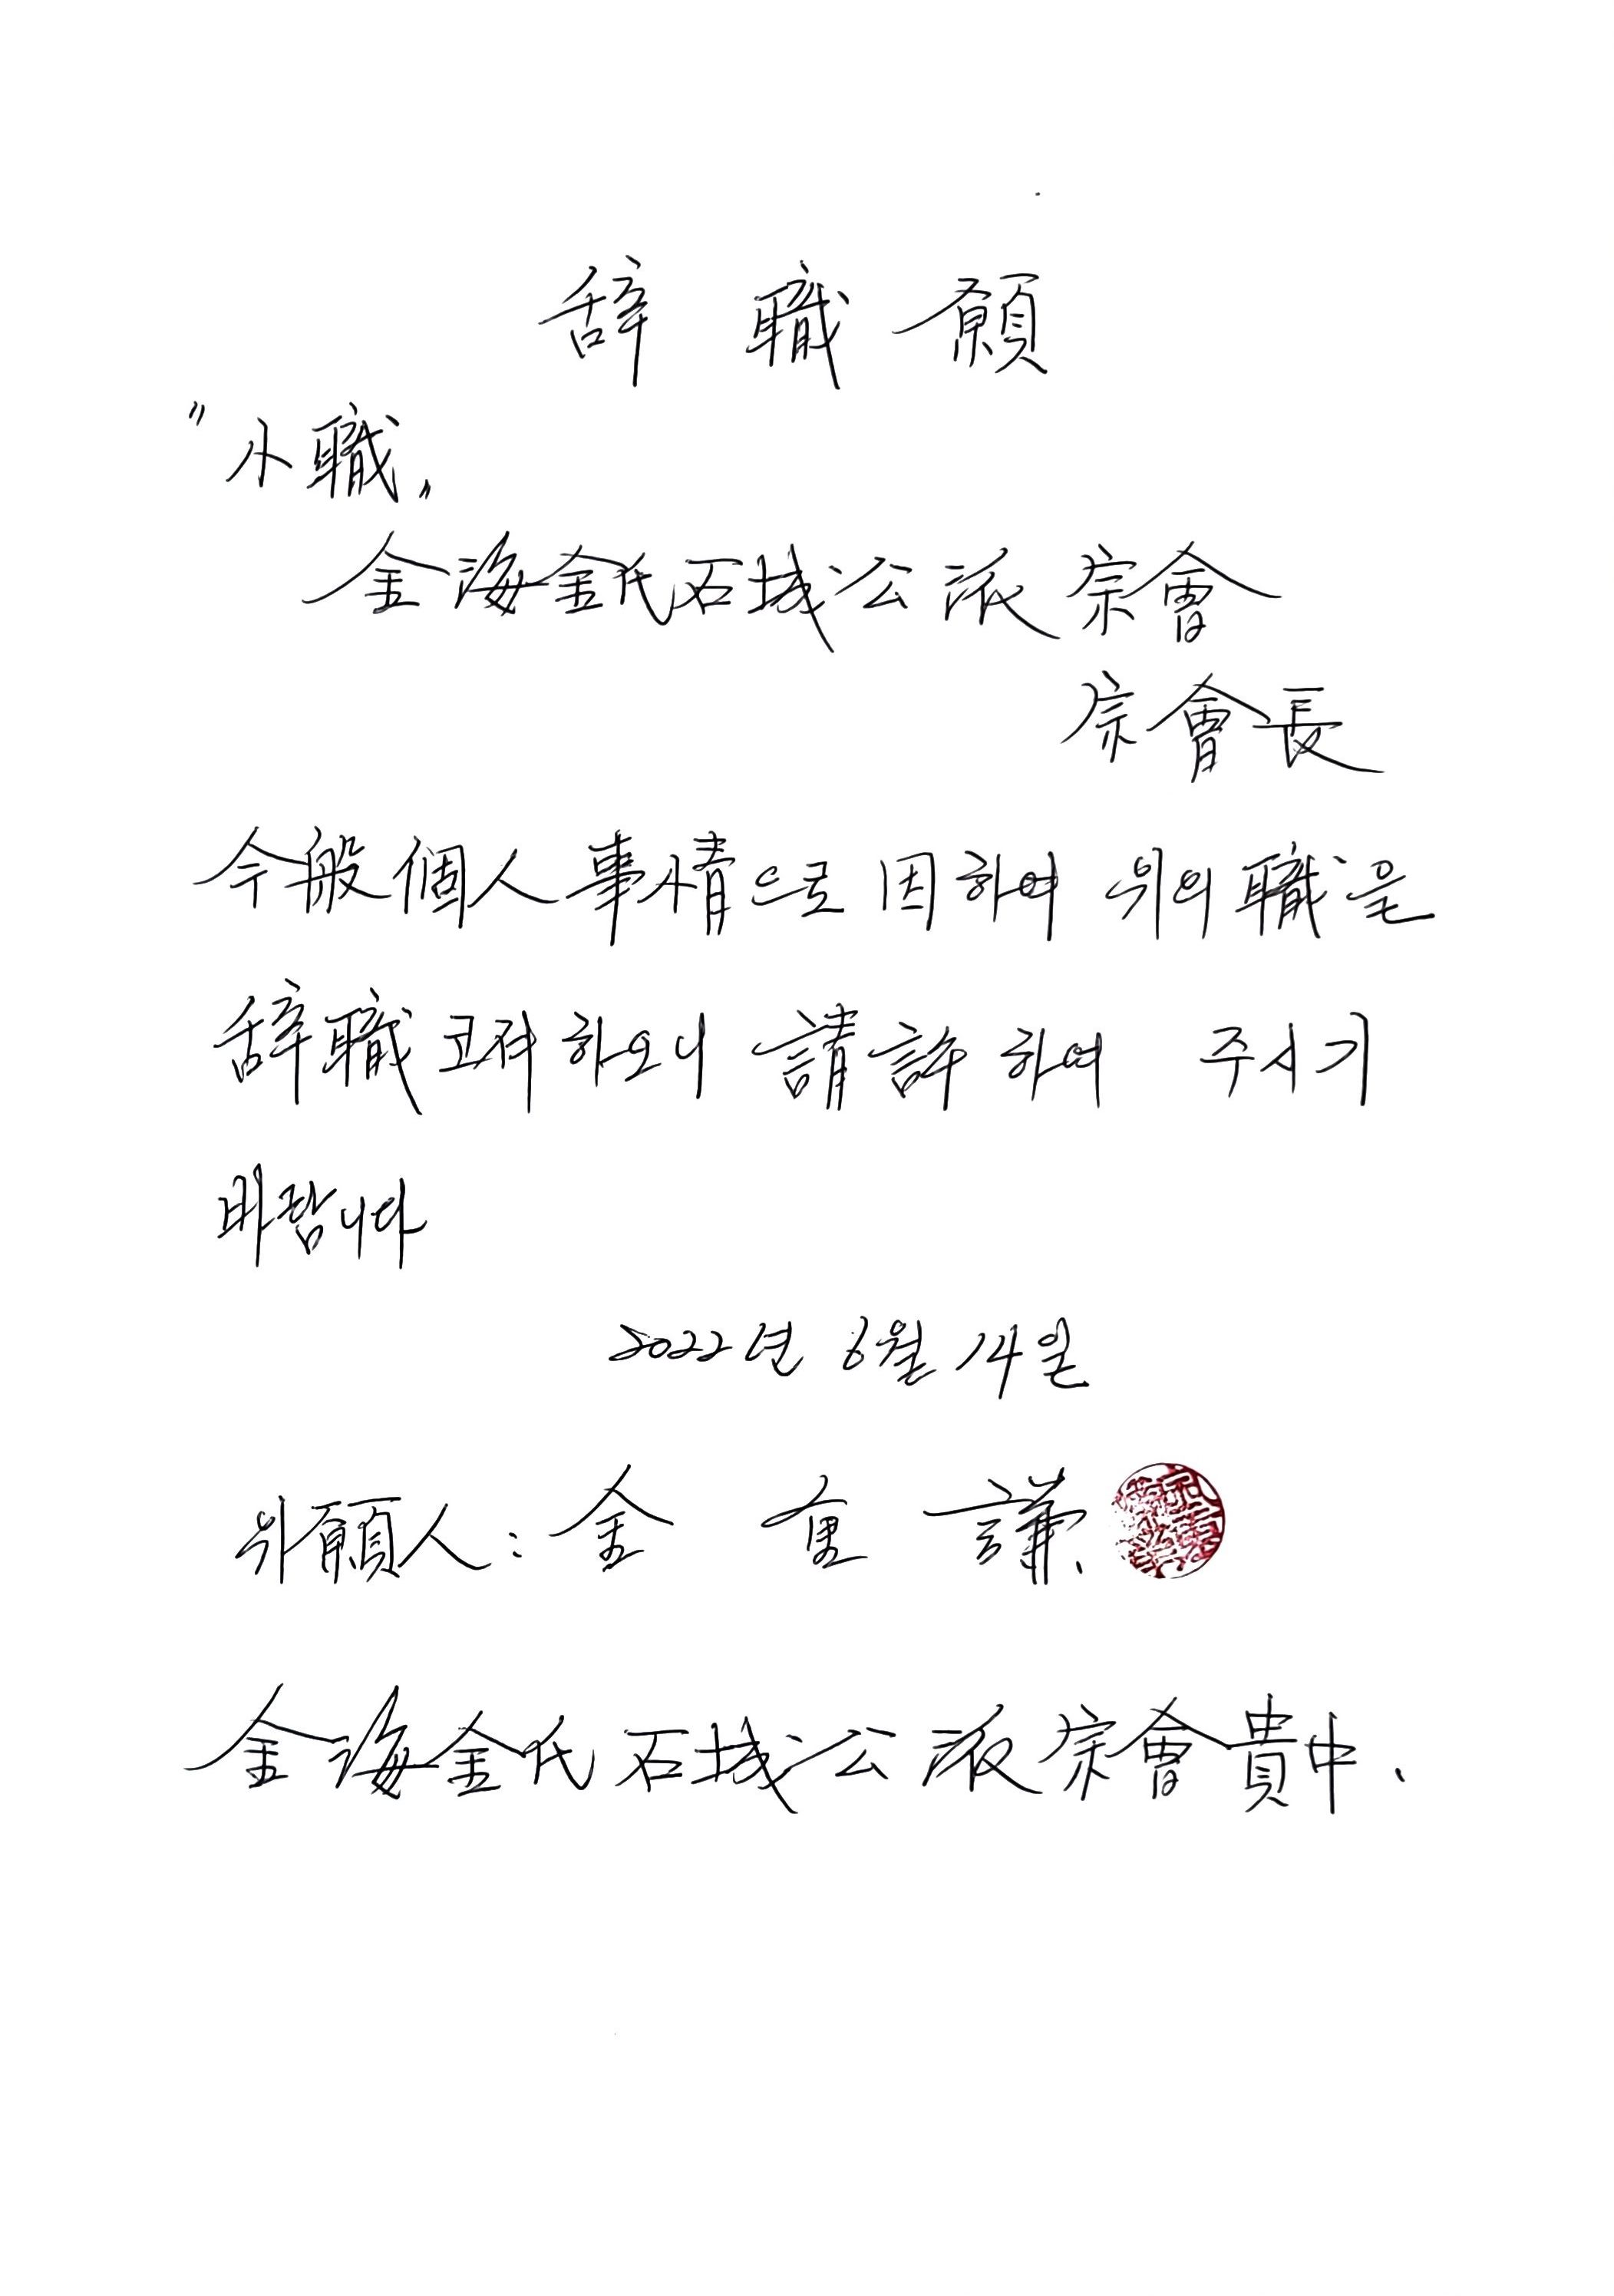 辞 職 願
"小職"
金海金氏石城公派宗會
宗會長
今般個人事情으로 因하여 위의 職을
辞職코저 하오니 請許하여 주시기
바랍니다
2022년 6월 14일
위願人: 金 重 謙.
金海金氏石城公派宗會貴中.